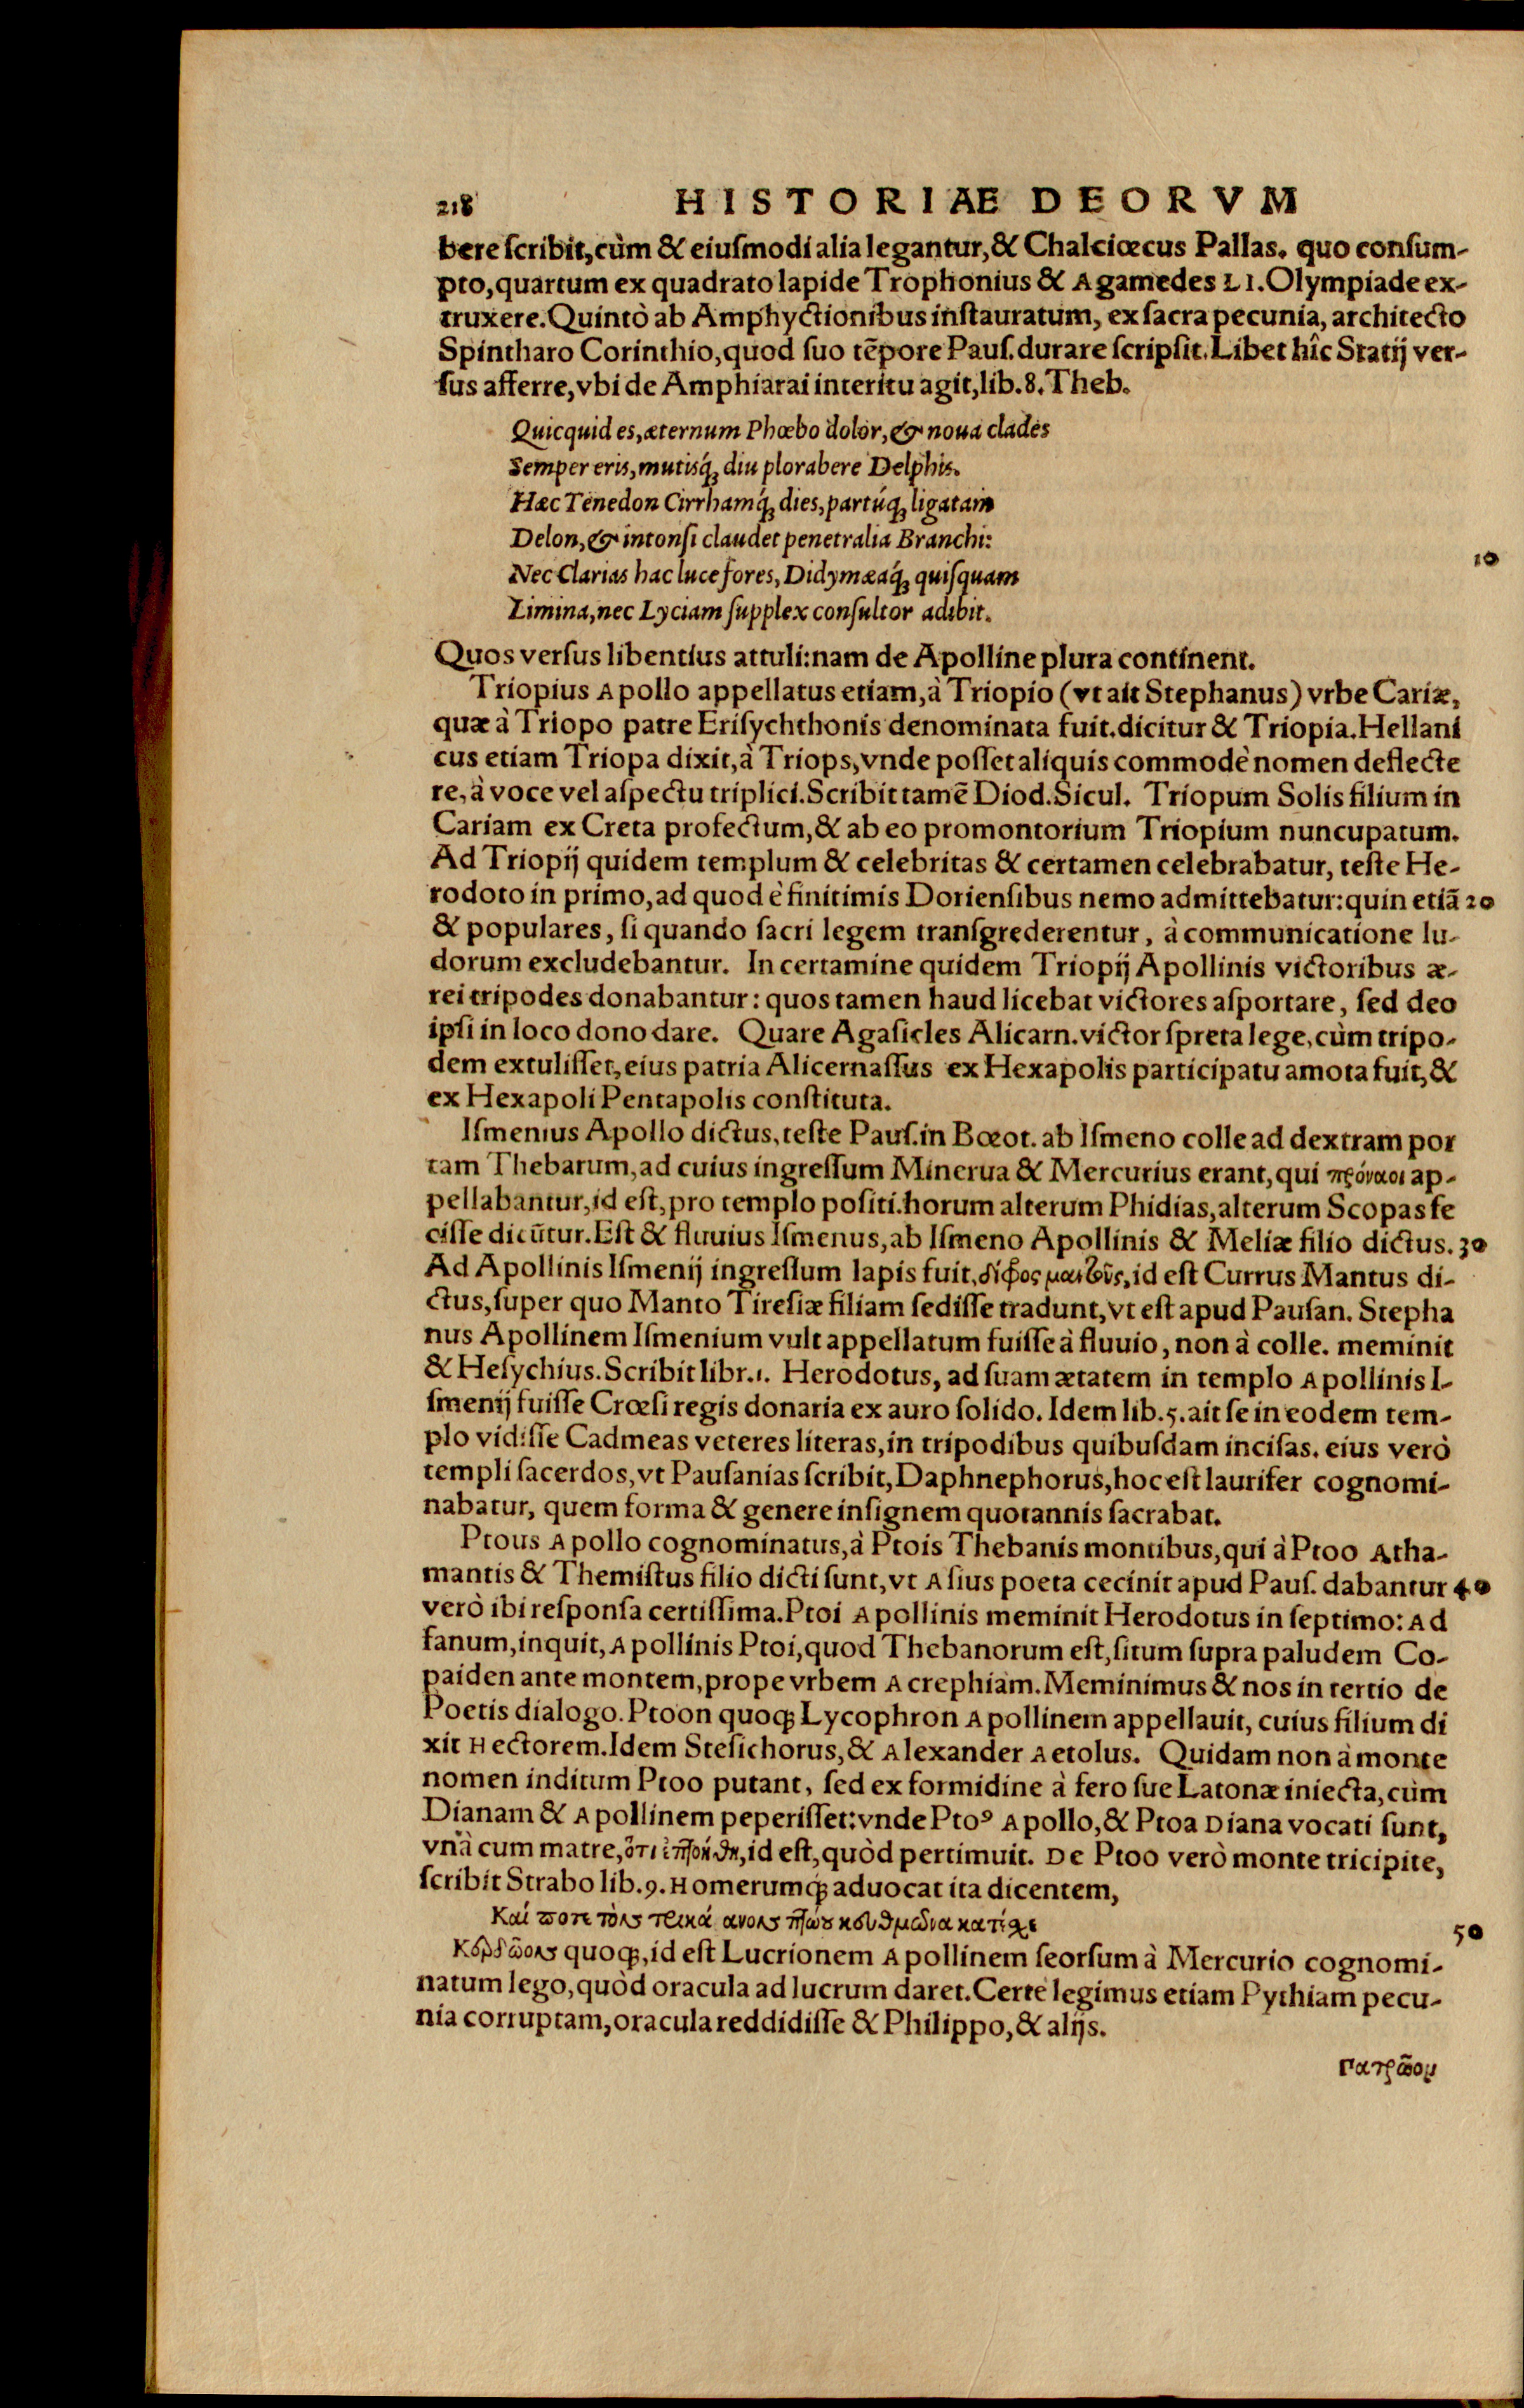 218 HISTORIAE DEORVM
bere ſcribit, cùm & eiuſmodi alia legantur, & Chalciœcus Pallas. quo conſum-
pto, quartum ex quadrato lapide Trophonius & Agamedes LI. Olympiade ex-
truxere. Quintò ab Amphyctionibus inſtauratum, ex ſacra pecunia, architecto
Spintharo Corinthio, quod ſuo tẽpore Pauſ. durare ſcripſit. Libet hîc Statij ver-
ſus afferre, vbi de Amphiarai interitu agit, lib. 8. Theb.
Quicquid es, æternum Phœbo dolor, & noua clades
Semper eris, mutisq́; diu plorabere Delphis.
Hæc Tenedon Cirrhamq́; dies, partúq; ligatam
Delon, & intonſi claudet penetralia Branchi:
10
Nec Clarias hac luce fores, Didymæaq́; quiſquam
Limina, nec Lyciam ſupplex conſultor adibit.
Quos verſus libentius attuli: nam de Apolline plura continent.
Triopius Apollo appellatus etiam, à Triopio (vt ait Stephanus) vrbe Cariæ,
quæ à Triopo patre Eriſychthonis denominata fuit. dicitur & Triopia. Hellani
cus etiam Triopa dixit, à Triops, vnde poſſet aliquis commodè nomen deflecte
re, à voce vel aſpectu triplici. Scribit tamẽ Diod. Sicul. Triopum Solis filium in
Cariam ex Creta profectum, & ab eo promontorium Triopium nuncupatum.
Ad Triopij quidem templum & celebritas & certamen celebrabatur, teſte He-
rodoto in primo, ad quod è finitimis Dorienſibus nemo admittebatur: quin etiã 20
& populares, ſi quando ſacri legem tranſgrederentur, à communicatione lu-
dorum excludebantur. In certamine quidem Triopij Apollinis victoribus æ-
rei tripodes donabantur: quos tamen haud licebat victores aſportare, ſed deo
ipſi in loco dono dare. Quare Agaſicles Alicarn. victor ſpreta lege, cùm tripo-
dem extuliſſet, eius patria Alicernaſſus ex Hexapolis participatu amota fuit, &
ex Hexapoli Pentapolis conſtituta.
Iſmenius Apollo dictus, teſte Pauſ. in Bœot. ab Iſmeno colle ad dextram por
tam Thebarum, ad cuius ingreſſum Minerua & Mercurius erant, qui πρόναοι ap-
pellabantur, id eſt, pro templo poſiti. horum alterum Phidias, alterum Scopas fe
ciſſe dicũtur. Eſt & fluuius Iſmenus, ab Iſmeno Apollinis & Meliæ filio dictus. 30
Ad Apollinis Iſmenij ingreſſum lapis fuit, δίφος μαντοῦς, id eſt Currus Mantus di-
ctus, ſuper quo Manto Tireſiæ filiam ſediſſe tradunt, vt eſt apud Pauſan. Stepha
nus Apollinem Iſmenium vult appellatum fuiſſe à fluuio, non à colle. meminit
& Heſychius. Scribit libr. 1. Herodotus, ad ſuam ætatem in templo Apollinis I-
ſmenij fuiſſe Crœſi regis donaria ex auro ſolido. Idem lib. 5. ait ſe in eodem tem-
plo vidiſſe Cadmeas veteres literas, in tripodibus quibuſdam inciſas. eius verò
templi ſacerdos, vt Pauſanias ſcribit, Daphnephorus, hoc eſt laurifer cognomi-
nabatur, quem forma & genere inſignem quotannis ſacrabat.
Ptous Apollo cognominatus, à Ptois Thebanis montibus, qui à Ptoo Atha-
mantis & Themiſtus filio dicti ſunt, vt Aſius poeta cecinit apud Pauſ. dabantur 40
verò ibi reſponſa certiſſima. Ptoi Apollinis meminit Herodotus in ſeptimo: Ad
fanum, inquit, Apollinis Ptoi, quod Thebanorum eſt, ſitum ſupra paludem Co-
paiden ante montem, prope vrbem Acrephiam. Meminimus & nos in tertio de
Poetis dialogo. Ptoon quoq; Lycophron Apollinem appellauit, cuius filium di
xit Hectorem. Idem Steſichorus, & Alexander Aetolus. Quidam non à monte
nomen inditum Ptoo putant, ſed ex formidine à fero ſue Latonæ iniecta, cùm
Dianam & Apollinem peperiſſet: vnde Ptoꝰ Apollo, & Ptoa Diana vocati ſunt,
vnà cum matre, ὅτι ἐπτοήθη, id eſt, quòd pertimuit. De Ptoo verò monte tricipite,
ſcribit Strabo lib. 9. Homerumq́; aduocat ita dicentem,
Καί ποτε τὸν τρικά ανον πτώου κευθμῶνα κατέχε
50
Κερδῶον quoq;, id eſt Lucrionem Apollinem ſeorſum à Mercurio cognomi-
natum lego, quòd oracula ad lucrum daret. Certè legimus etiam Pythiam pecu-
nia corruptam, oracula reddidiſſe & Philippo, & alijs.
Πατρῶον